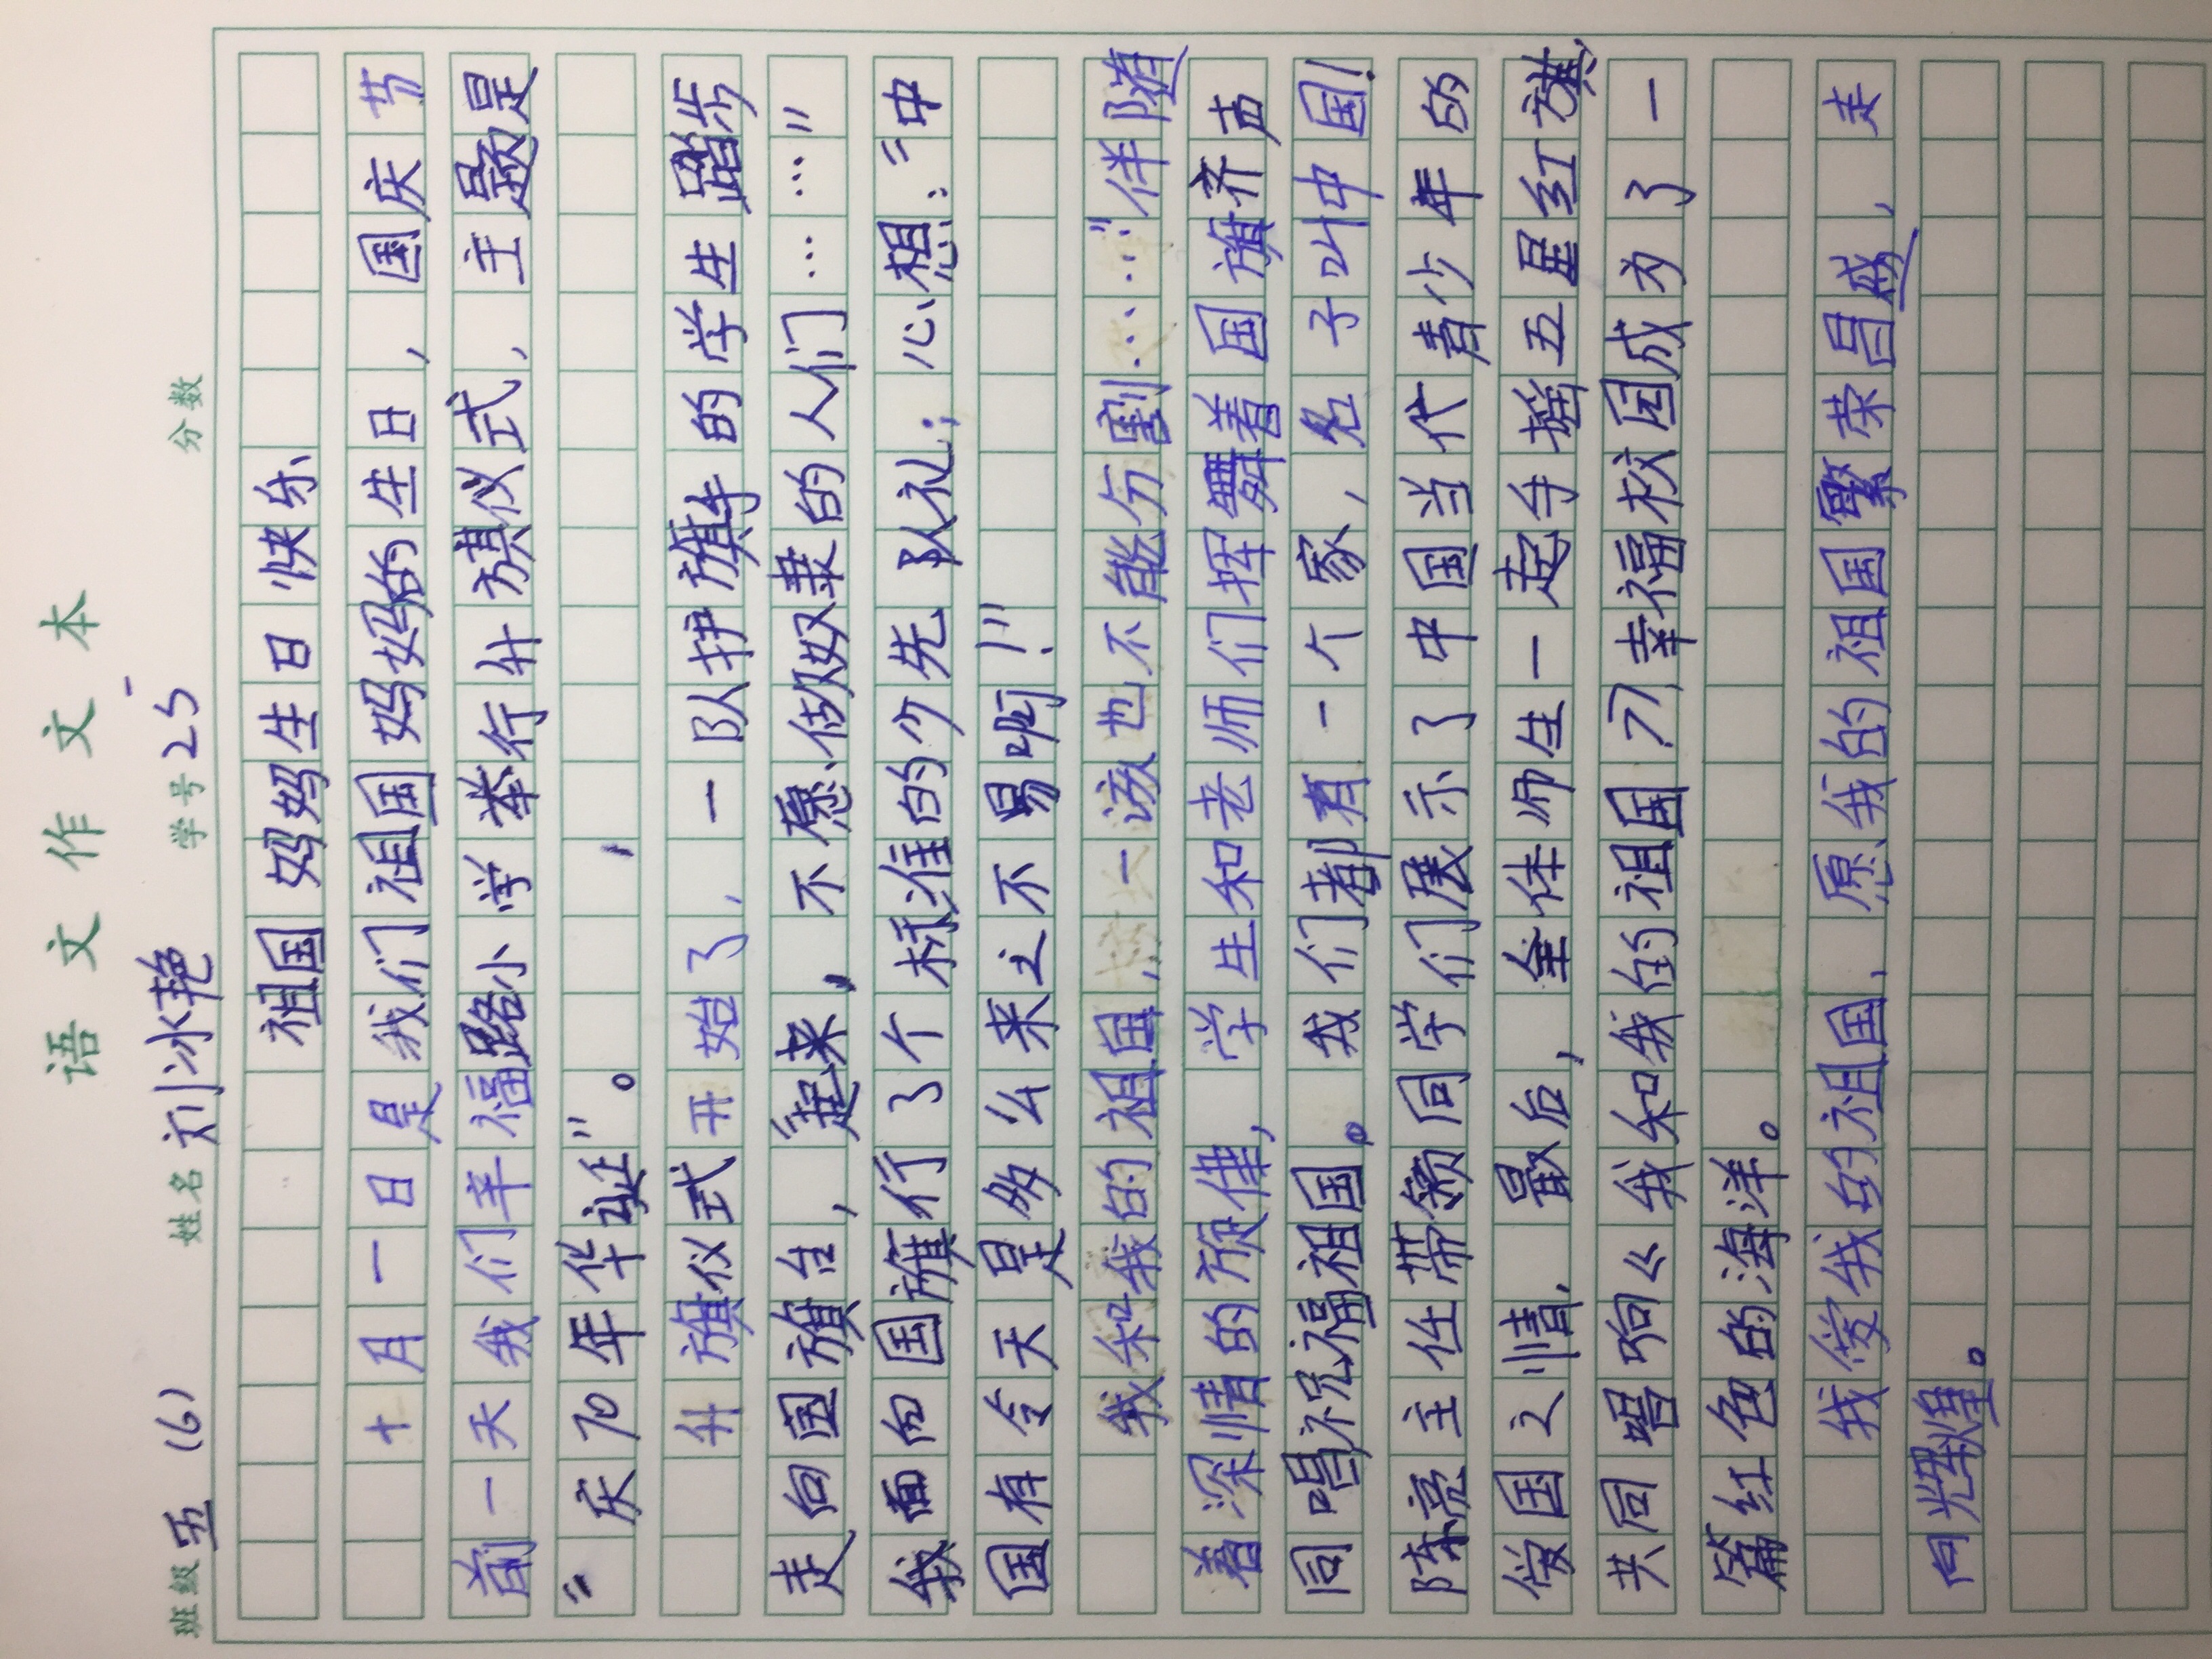 语文作文本
班级 五(6) 姓名 刘冰艳 学号 25 分数
祖国妈妈生日快乐
十月一日是我们祖国妈妈妈的生日,国庆节
前一天我们辛福路小学举行升旗仪式,主题是
“庆70年华诞”。
升旗仪式开始了,一队护旗手的学生踏步
走向国旗台,“起来,不愿做奴隶的人们……”
我面向国旗行了个标准的少先队礼;心想:“中
国有今天是多么来之不易啊!”
我和我的祖国,一该也不能分割……”伴随
着深情的旋律,学生和老师们挥舞着国旗齐声
同唱祝福祖国。我们都有一个家,名子叫中国!
陈亮主任带领同学们展示了中国当代青少年的
爱国之情,最后,全体师生一起手摇五星红旗,
共同唱响《我和我的祖国》幸福校园成为了一
篇红色的海洋。
我爱我的祖国,愿我的祖国繁荣昌盛,走
向辉煌。